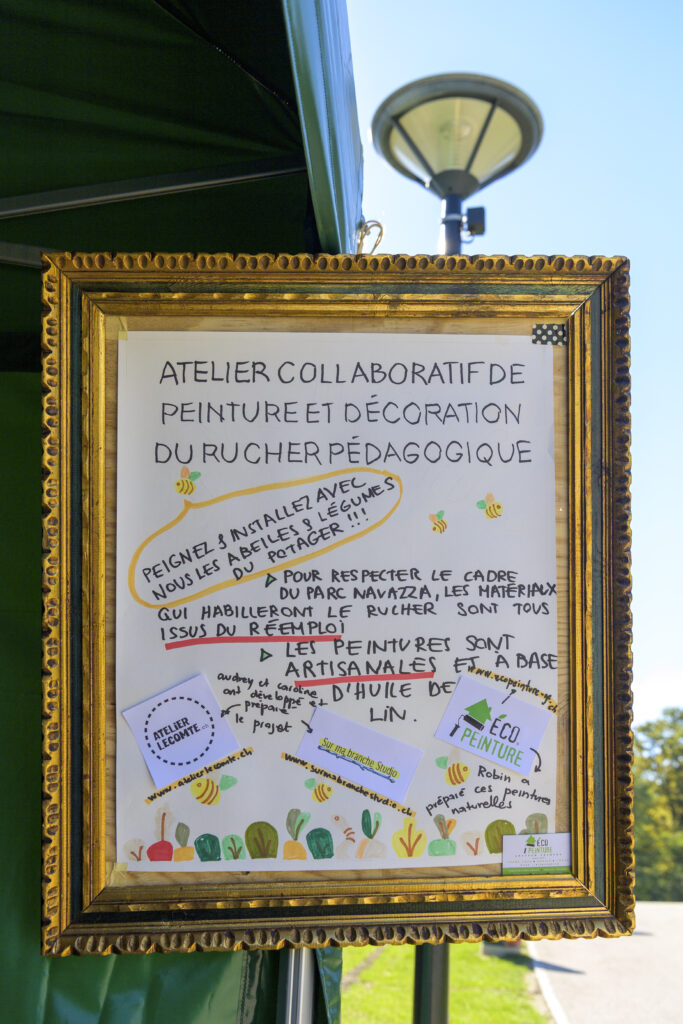 ATELIER COLLABORATIF DE
PEINTURE ET DÉCORATION
DU RUCHER PÉDAGOGIQUE
PEIGNEZ & INSTALLEZ AVEC
NOUS LES ABEILLES & LÉGUMES
DU POTAGER !!!
POUR RESPECTER LE CADRE
DU PARC NAVAZZA, LES MATÉRIAUX
QUI HABILLERONT LE RUCHER SONT TOUS
ISSUS DU RÉEMPLOI
LES PEINTURES SONT
ARTISANALES ET À BASE
D'HUILE DE
LIN.
audrey et caroline
ont développé et
préparé
le projet
ATELIER
LECOMTE.ch
www.atelierlecomte.ch
Sur ma branche Studio
www.surmabranchestudio.ch
ÉCO
PEINTURE
Robin a
préparé ces peintures
naturelles
ÉCO
PEINTURE